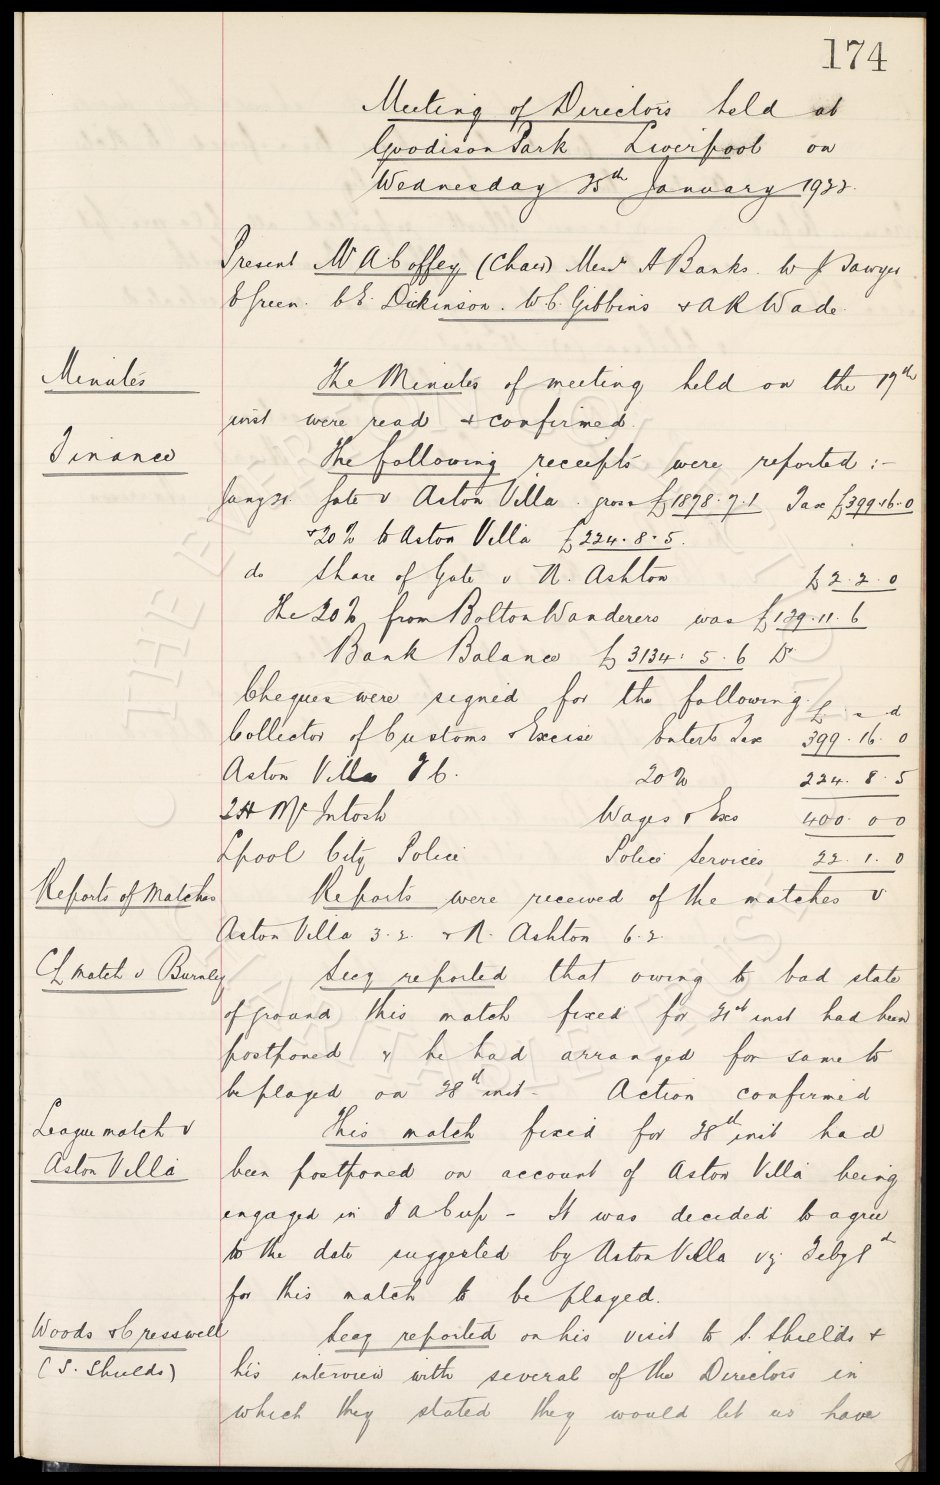 174
Meeting of Directors held at
Goodison Park Liverpool on
Wednesday 25th January 1922.
Present Mr A Coffey (Chair) Messrs A Banks. W J Sawyer
E Green. C E. Dickinson. W C. Gibbins & A R Wade.
Minutes The Minutes of meeting held on the 17th
inst were read & confirmed.
Finance The following receipts were reported :-
Jany 21. Gate v Aston Villa. gross £1878. 7. 1 Tax £399.16.0
& 20% to Aston Villa £224. 8. 5.
do Share of Gate v N. Ashton £2. 2. 0
The 20% from Bolton Wanderers was £129. 11. 6
Bank Balance £3134. 5. 6 Dr
Cheques were signed for the following.
£ s d
Collector of Customs & Excise Enterts Tax 399. 16. 0
Aston Villa F C. 20% 224. 8. 5
T H McIntosh Wages & Exs 400. 0 0
Lpool City Police Police Services 22. 1. 0
Reports of Matches Reports were received of the matches v
Aston Villa 3. 2. & N. Ashton 6. 2
CL match v Burnley Secy reported that owing to bad state
of ground this match fixed for 21st inst had been
postponed & he had arranged for same to
be played on 28th inst - Action confirmed
League match v This match fixed for 28th inst had
Aston Villa been postponed on account of Aston Villa being
engaged in F A Cup - It was decided to agree
to the date suggested by Aston Villa vz. Feby
for this match to be played.
Woods & Cresswell Secy reported on his visit to S. Shields &
(S. Shields) his interview with several of the Directors in
which they stated they would let us have